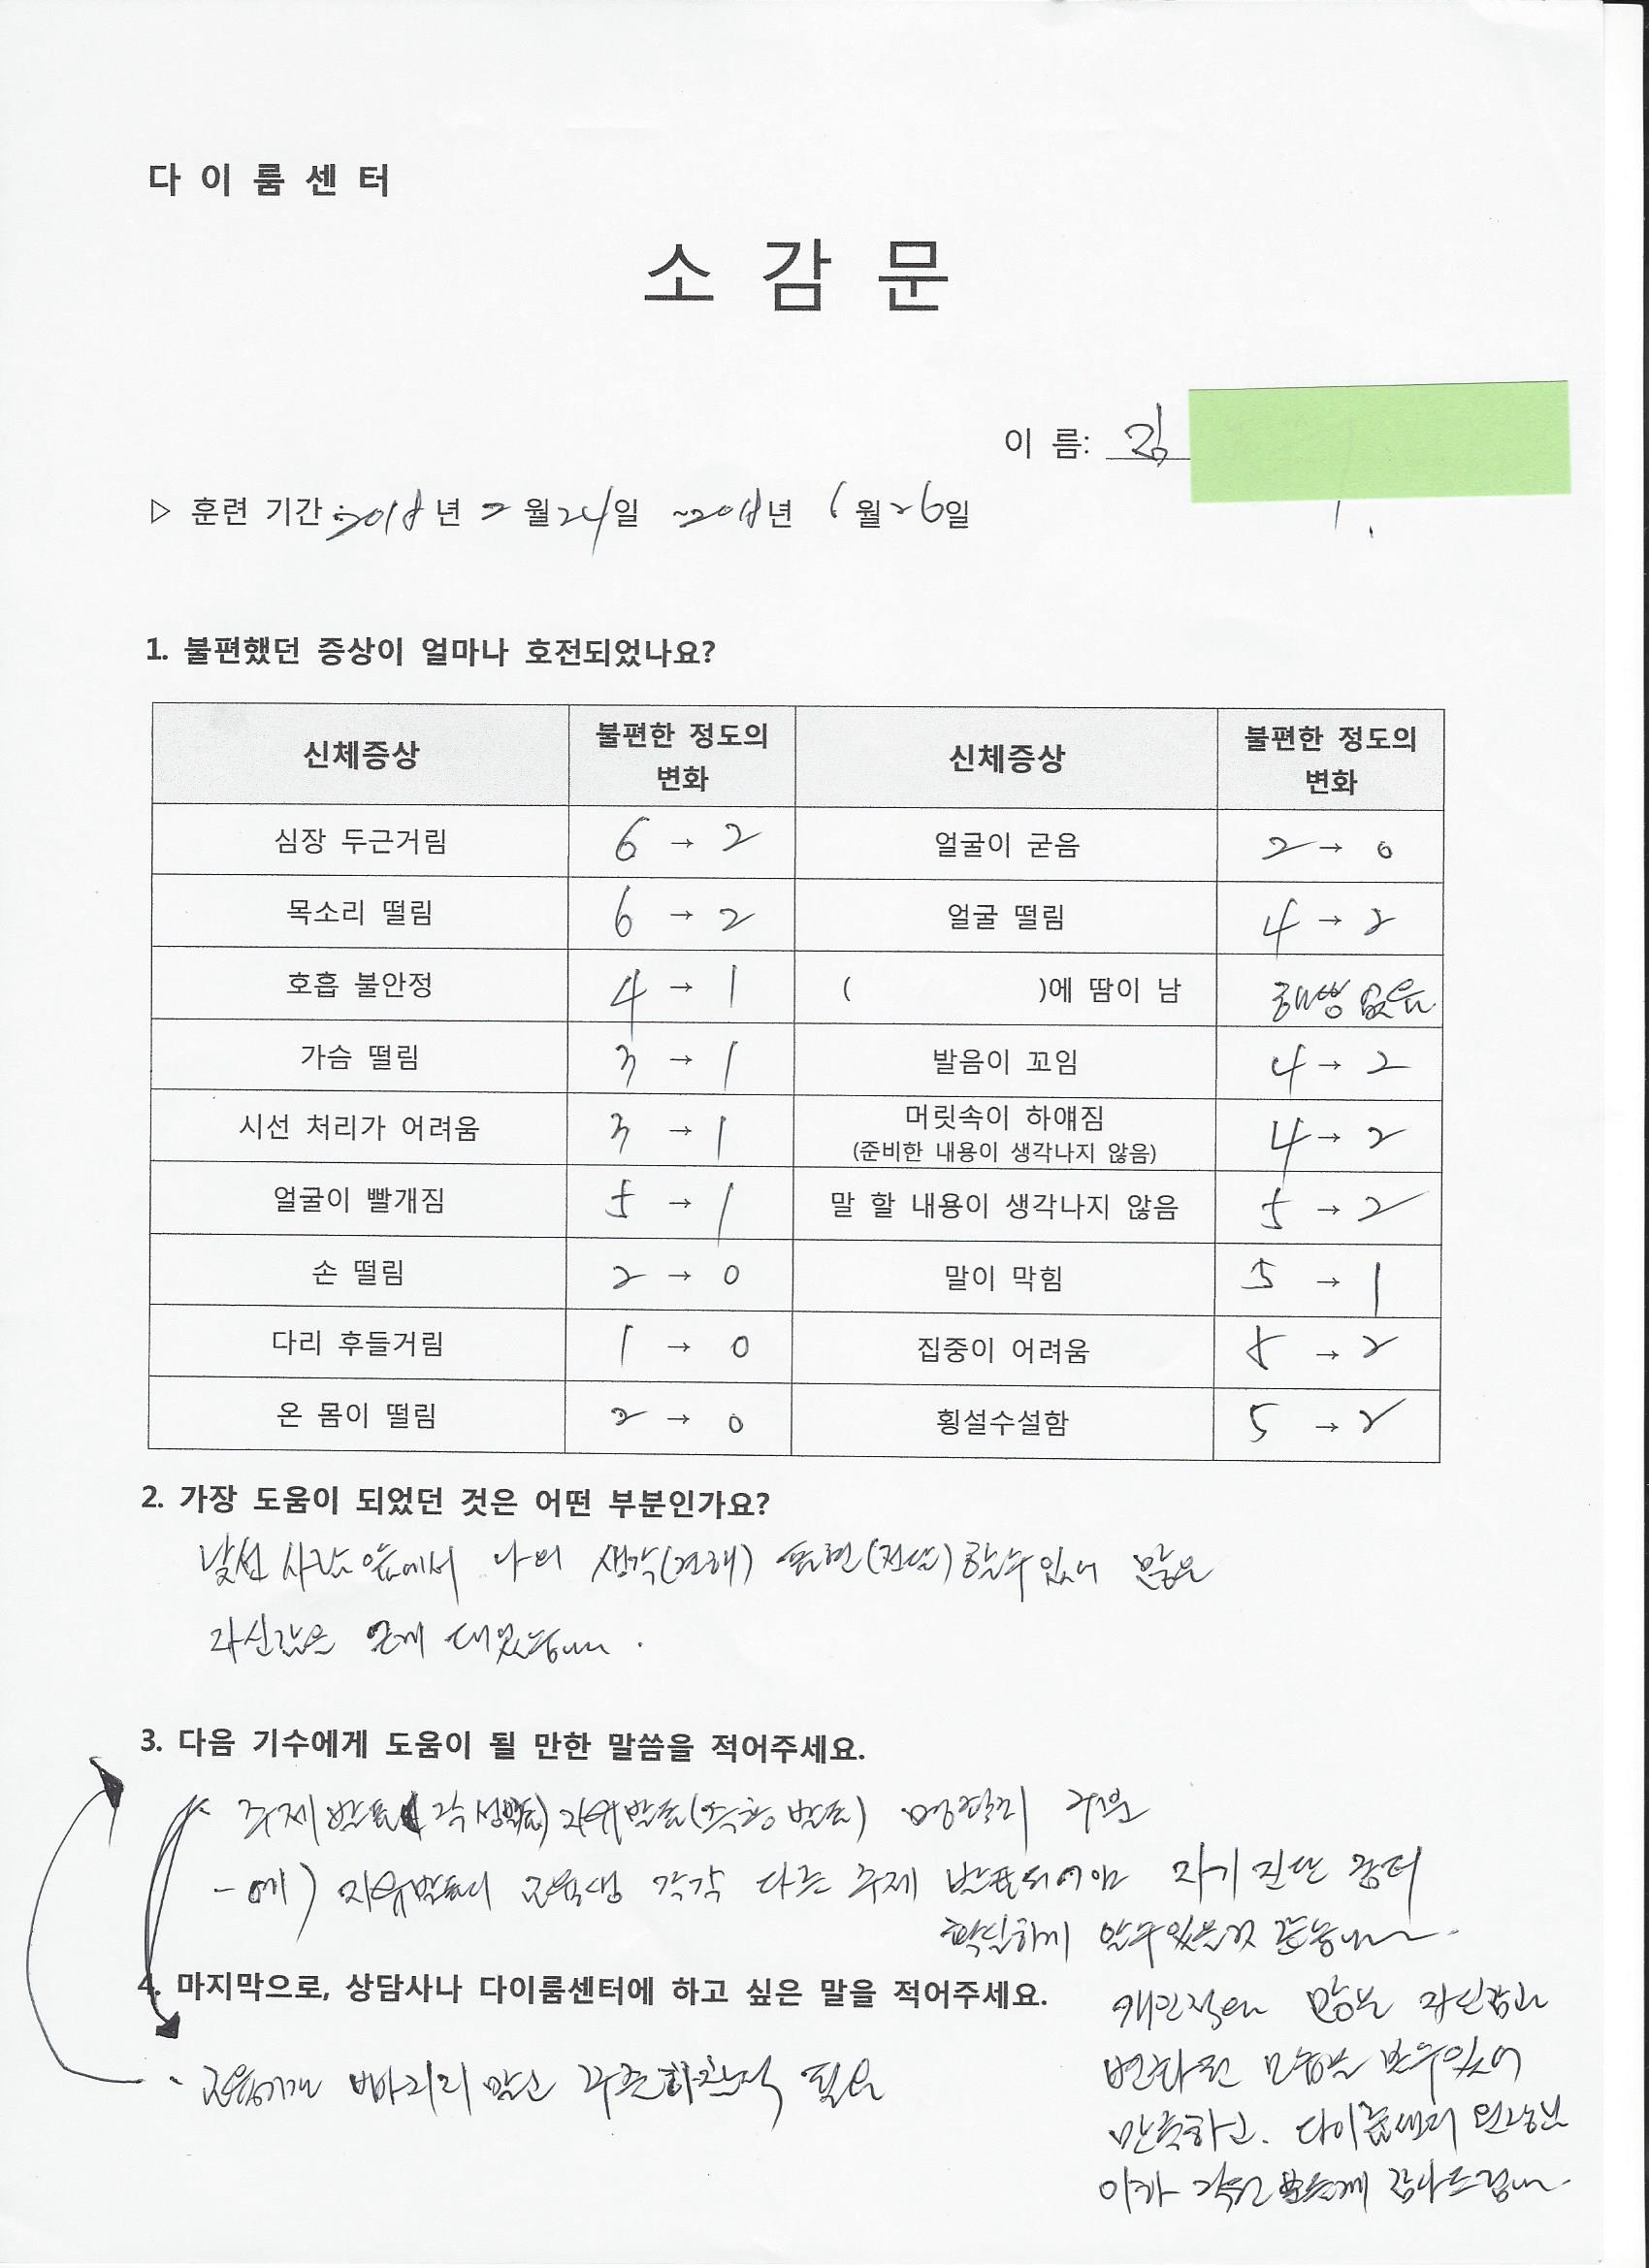 다이룸센터
소감문
이 름: 김
▷ 훈련 기간: 2018년 2월 24일 ~2018년 6월 26일
1. 불편했던 증상이 얼마나 호전되었나요?
신체증상 불편한 정도의 변화 신체증상 불편한 정도의 변화
심장 두근거림 6 → 2 얼굴이 굳음 2 → 0
목소리 떨림 6 → 2 얼굴 떨림 4 → 2
호흡 불안정 4 → 1 ( )에 땀이 남 해당 없음
가슴 떨림 3 → 1 발음이 꼬임 4 → 2
시선 처리가 어려움 3 → 1 머릿속이 하얘짐 (준비한 내용이 생각나지 않음) 4 → 2
얼굴이 빨개짐 5 → 1 말 할 내용이 생각나지 않음 5 → 2
손 떨림 2 → 0 말이 막힘 5 → 1
다리 후들거림 1 → 0 집중이 어려움 5 → 2
온 몸이 떨림 2 → 0 횡설수설함 5 → 2
2. 가장 도움이 되었던 것은 어떤 부분인가요?
낯선 사람 앞에서 나의 생각(견해) 표현(전달)할수있어 많은
자신감을 얻게 대었습니다.
3. 다음 기수에게 도움이 될 만한 말씀을 적어주세요.
주제발표( 자유발표(즉흥발표) 명확히 구분
- 예) 자유발표시 교육생 각각 다른 주제 자기진단
확실하게 알수있을것 같습니다.
4. 마지막으로, 상담사나 다이룸센터에 하고 싶은 말을 적어주세요.
· 교육기간 빠지지 말고 꾸준히 필요
개인적으로 많은 자신감과
변화된 모습을 볼수있어
만족하고. 다이룸센터 원장님
이하 직원분들께 감사드립니다.